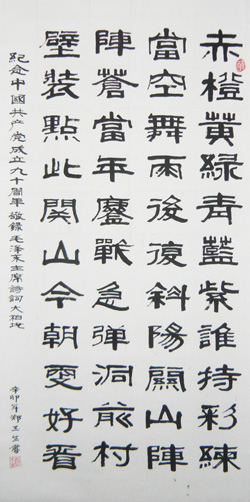 赤橙黃緑青藍紫誰持彩練
當空舞雨後復斜陽關山陣
陣蒼當年鏖戰急弹洞前村
壁装點此関山今朝更好看
紀念中國共产党成立九十周年敬錄毛泽东主席詩詞大柏地
辛卯年